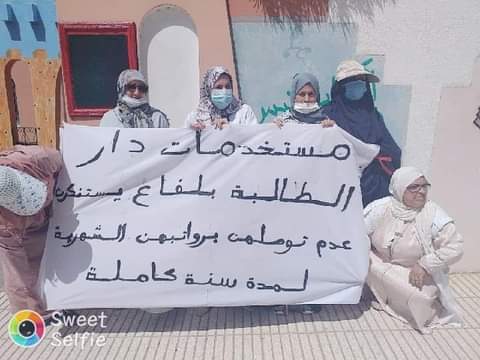 مستخدمات دار
الطالبة بلفاع يستنكرن
عدم توصلهن برواتبهن الشهرية
لمدة سنة كاملة
Sweet
Selfie